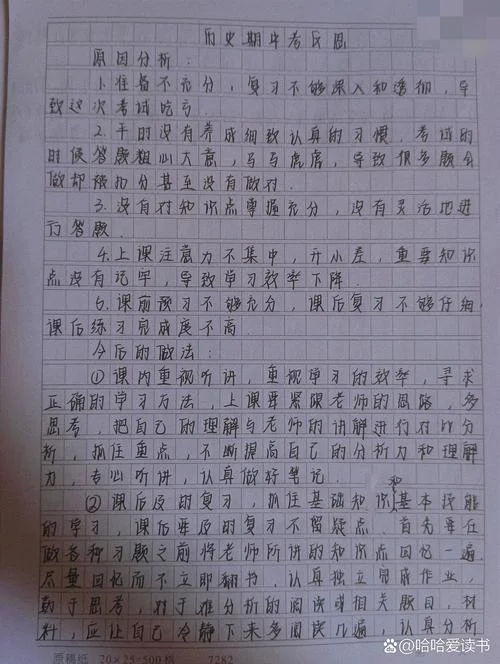 历史期中考反思
原因分析：
1.准备不充分，复习不够深入和透彻，导
致这次考试吃亏.
2.平时没有养成细致认真的习惯，考试的
时候答题粗心大意，马马虎虎，导致很多题会
做却被扣分甚至没有做对.
3.没有对知识点掌握充分，没有灵活地进
行答题.
4.上课注意力不集中，开小差，重要知识
点没有记牢，导致学习效率下降.
6.课前预习不够充分，课后复习不够仔细，
课后练习完成度不高.
今后的做法：
①课内重视听讲，重视学习的效率，寻求
正确的学习方法，上课要紧跟老师的思路，多
思考，把自己的理解与老师的讲解进行对比分
析，抓住重点，不断提高自己的分析力和理解
力，专心听讲，认真做好笔记.
②课后及时复习，抓住基础知识和基本技能
的学习，课后要及时复习不留疑点.首先要在
做各种习题之前将老师所讲的知识点回忆一遍，
尽量回忆而不立即翻书.认真独立完成作业，
勤于思考，对于难分析的阅读或相关题目，材
料，应让自己冷静下来多阅读几遍，认真分析
原稿纸 20×25=500格 7282
哈哈爱读书